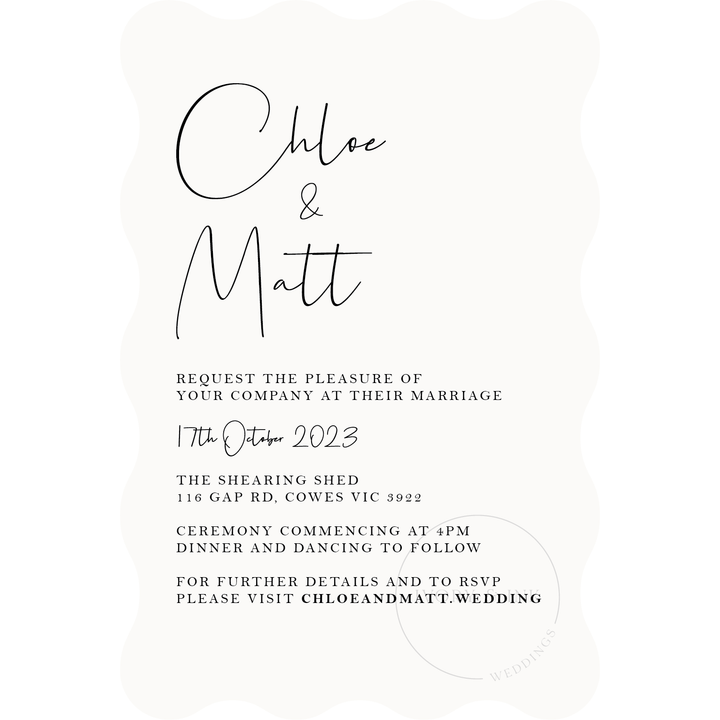 Chloe
&
Matt
REQUEST THE PLEASURE OF
YOUR COMPANY AT THEIR MARRIAGE
17th October 2023
THE SHEARING SHED
116 GAP RD, COWES VIC 3922
CEREMONY COMMENCING AT 4PM
DINNER AND DANCING TO FOLLOW
FOR FURTHER DETAILS AND TO RSVP
PLEASE VISIT CHLOEANDMATT.WEDDING
WEDDINGS